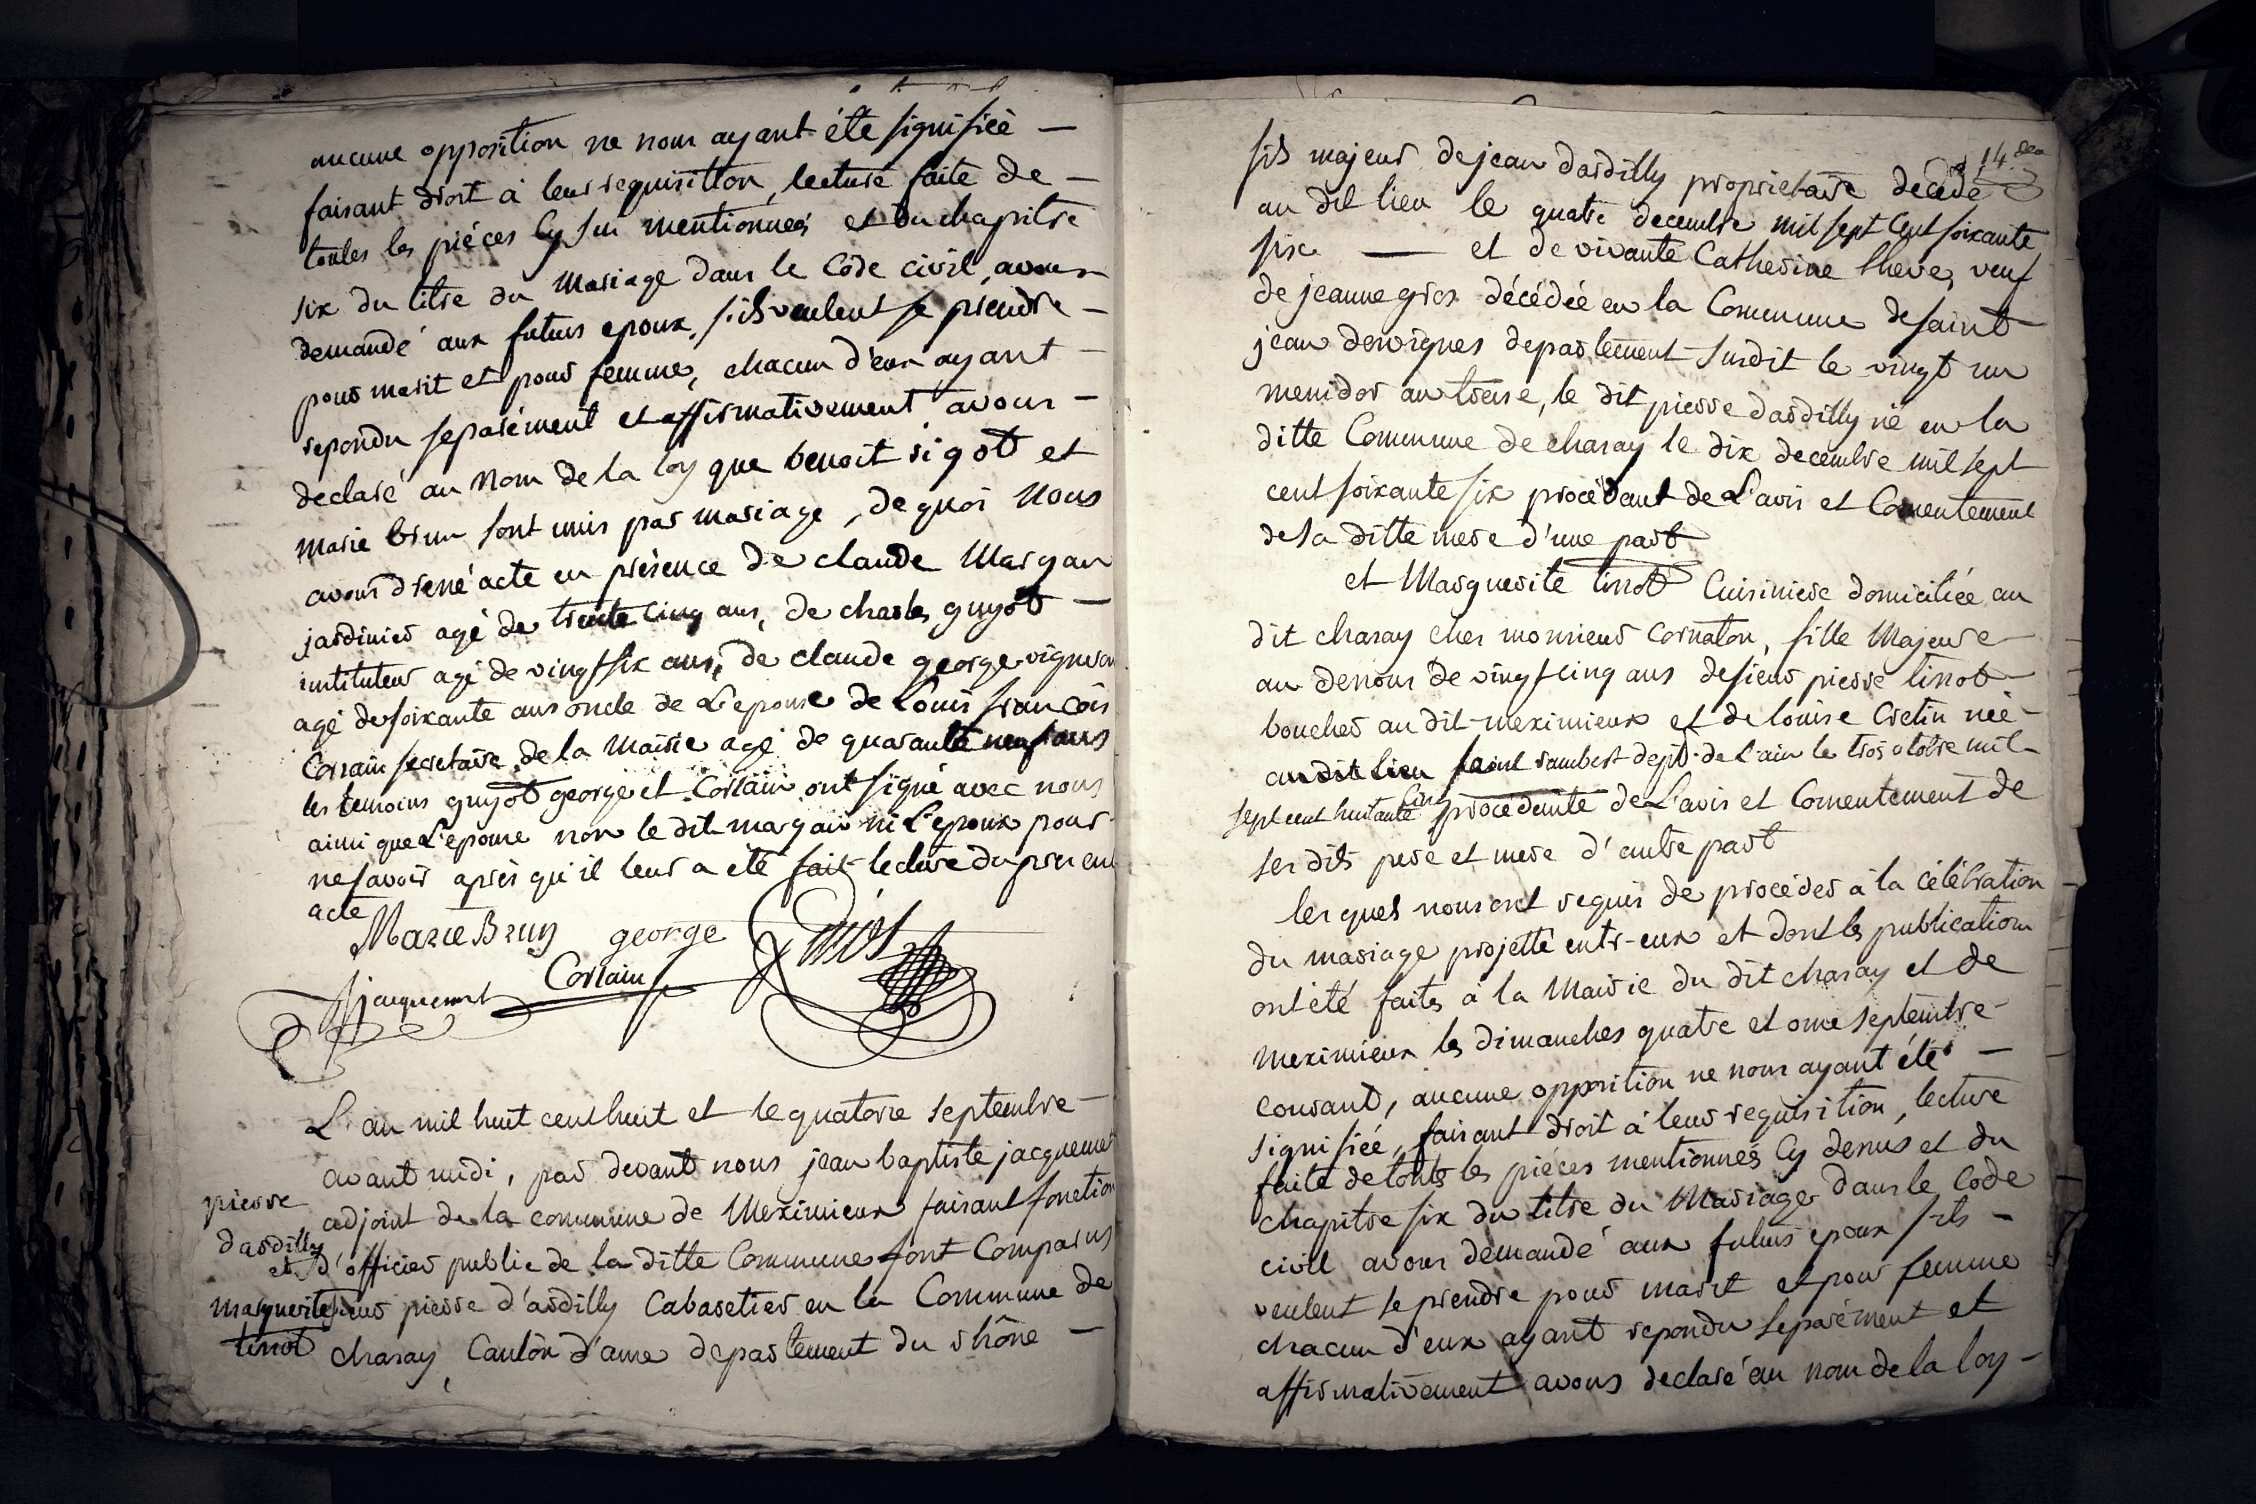 aucune opposition ne nous ayant été signifiée —
faisant droit à leur requisition, lecture faite de —
toutes les piéces cy sus mentionneés et du chapitre
six du titre du Mariage dans le Code civil, avons
demandé aux futurs epoux, s'ils veulent se prendre —
pour marit et pour femme, chacun d'eux ayant —
repondu separément et affirmativement avons —
declaré au Nom de la loy que benoit rigot et
Marie brun sont unis par mariage, de quoi Nous
avons dressé acte en présence de claude Margan
jardinier agé de trente cinq ans, de charles guyot —
instituteur agé de vingt six ans, de claude george vigneron
agé de soixante ans oncle de L'epouse de Louis françois
Corlain secretaire de la Mairie agé de quarante neuf ans
les temoins guyot george et Corlain ont signé avec nous
ainsi que L'epouse non le dit margan ni L'epoux pour
ne savoir après qu'il leur a été fait lecture du présent
acte
Marie Brun george
Corlain
jjacquemet
L'an mil huit cent huit et le quatorze septembre —
avant midi, par devant nous jean baptiste jacquemet
pierre
adjoint de la commune de Meximieux faisant fonction
dardilly
et d'officier public de la ditte Commune sont Comparus
marguerite sieur pierre d'ardilly Cabaretier en la Commune de
tissot charay, Canton d'anse departement du rhône —
14. 
fils majeur de jean dardilly proprietaire décédé
au dit lieu le quatre decembre mil sept cent soixante
six — et de vivante Catherine theve, veuf
de jeanne gros décédée en la Commune de saint
jean desvignes departement susdit le vingt un
messidor an treise, le dit pierre dardilly né en la
ditte Commune de charay le dix decembre mil sept
cent soixante six procédant de L'avis et Consentement
de sa ditte mere d'une part
et Marguerite tissot Cuisiniere domiciliée au
dit charay ches monsieur cornaton, fille Majeure
au dessous de vingt cinq ans de sieur pierre tissot
boucher au dit meximieux et de louise cretin née —
au dit lieu saint rambert dept. de l'ain le trois octobre mil
sept cent huitante cinq procédante de L'avis et Consentement de
ses dits pere et mere d'autre part
lesquels nous ont requis de procéder à la célébration
du mariage projetté entr-eux et dont les publications
ont été faites à la Mairie du dit charay et de
meximieux les dimanches quatre et onse septembre —
courant, aucune opposition ne nous ayant été —
signifiée, faisant droit à leur requisition, lecture
faite de toutes les piéces mentionneés cy dessus et du
chapitre six du titre du Mariage dans le Code
civil avons demandé aux futurs epoux s'ils —
veulent se prendre pour marit et pour femme
chacun d'eux ayant repondu separément et
affirmativement avons declaré au nom de la loy —